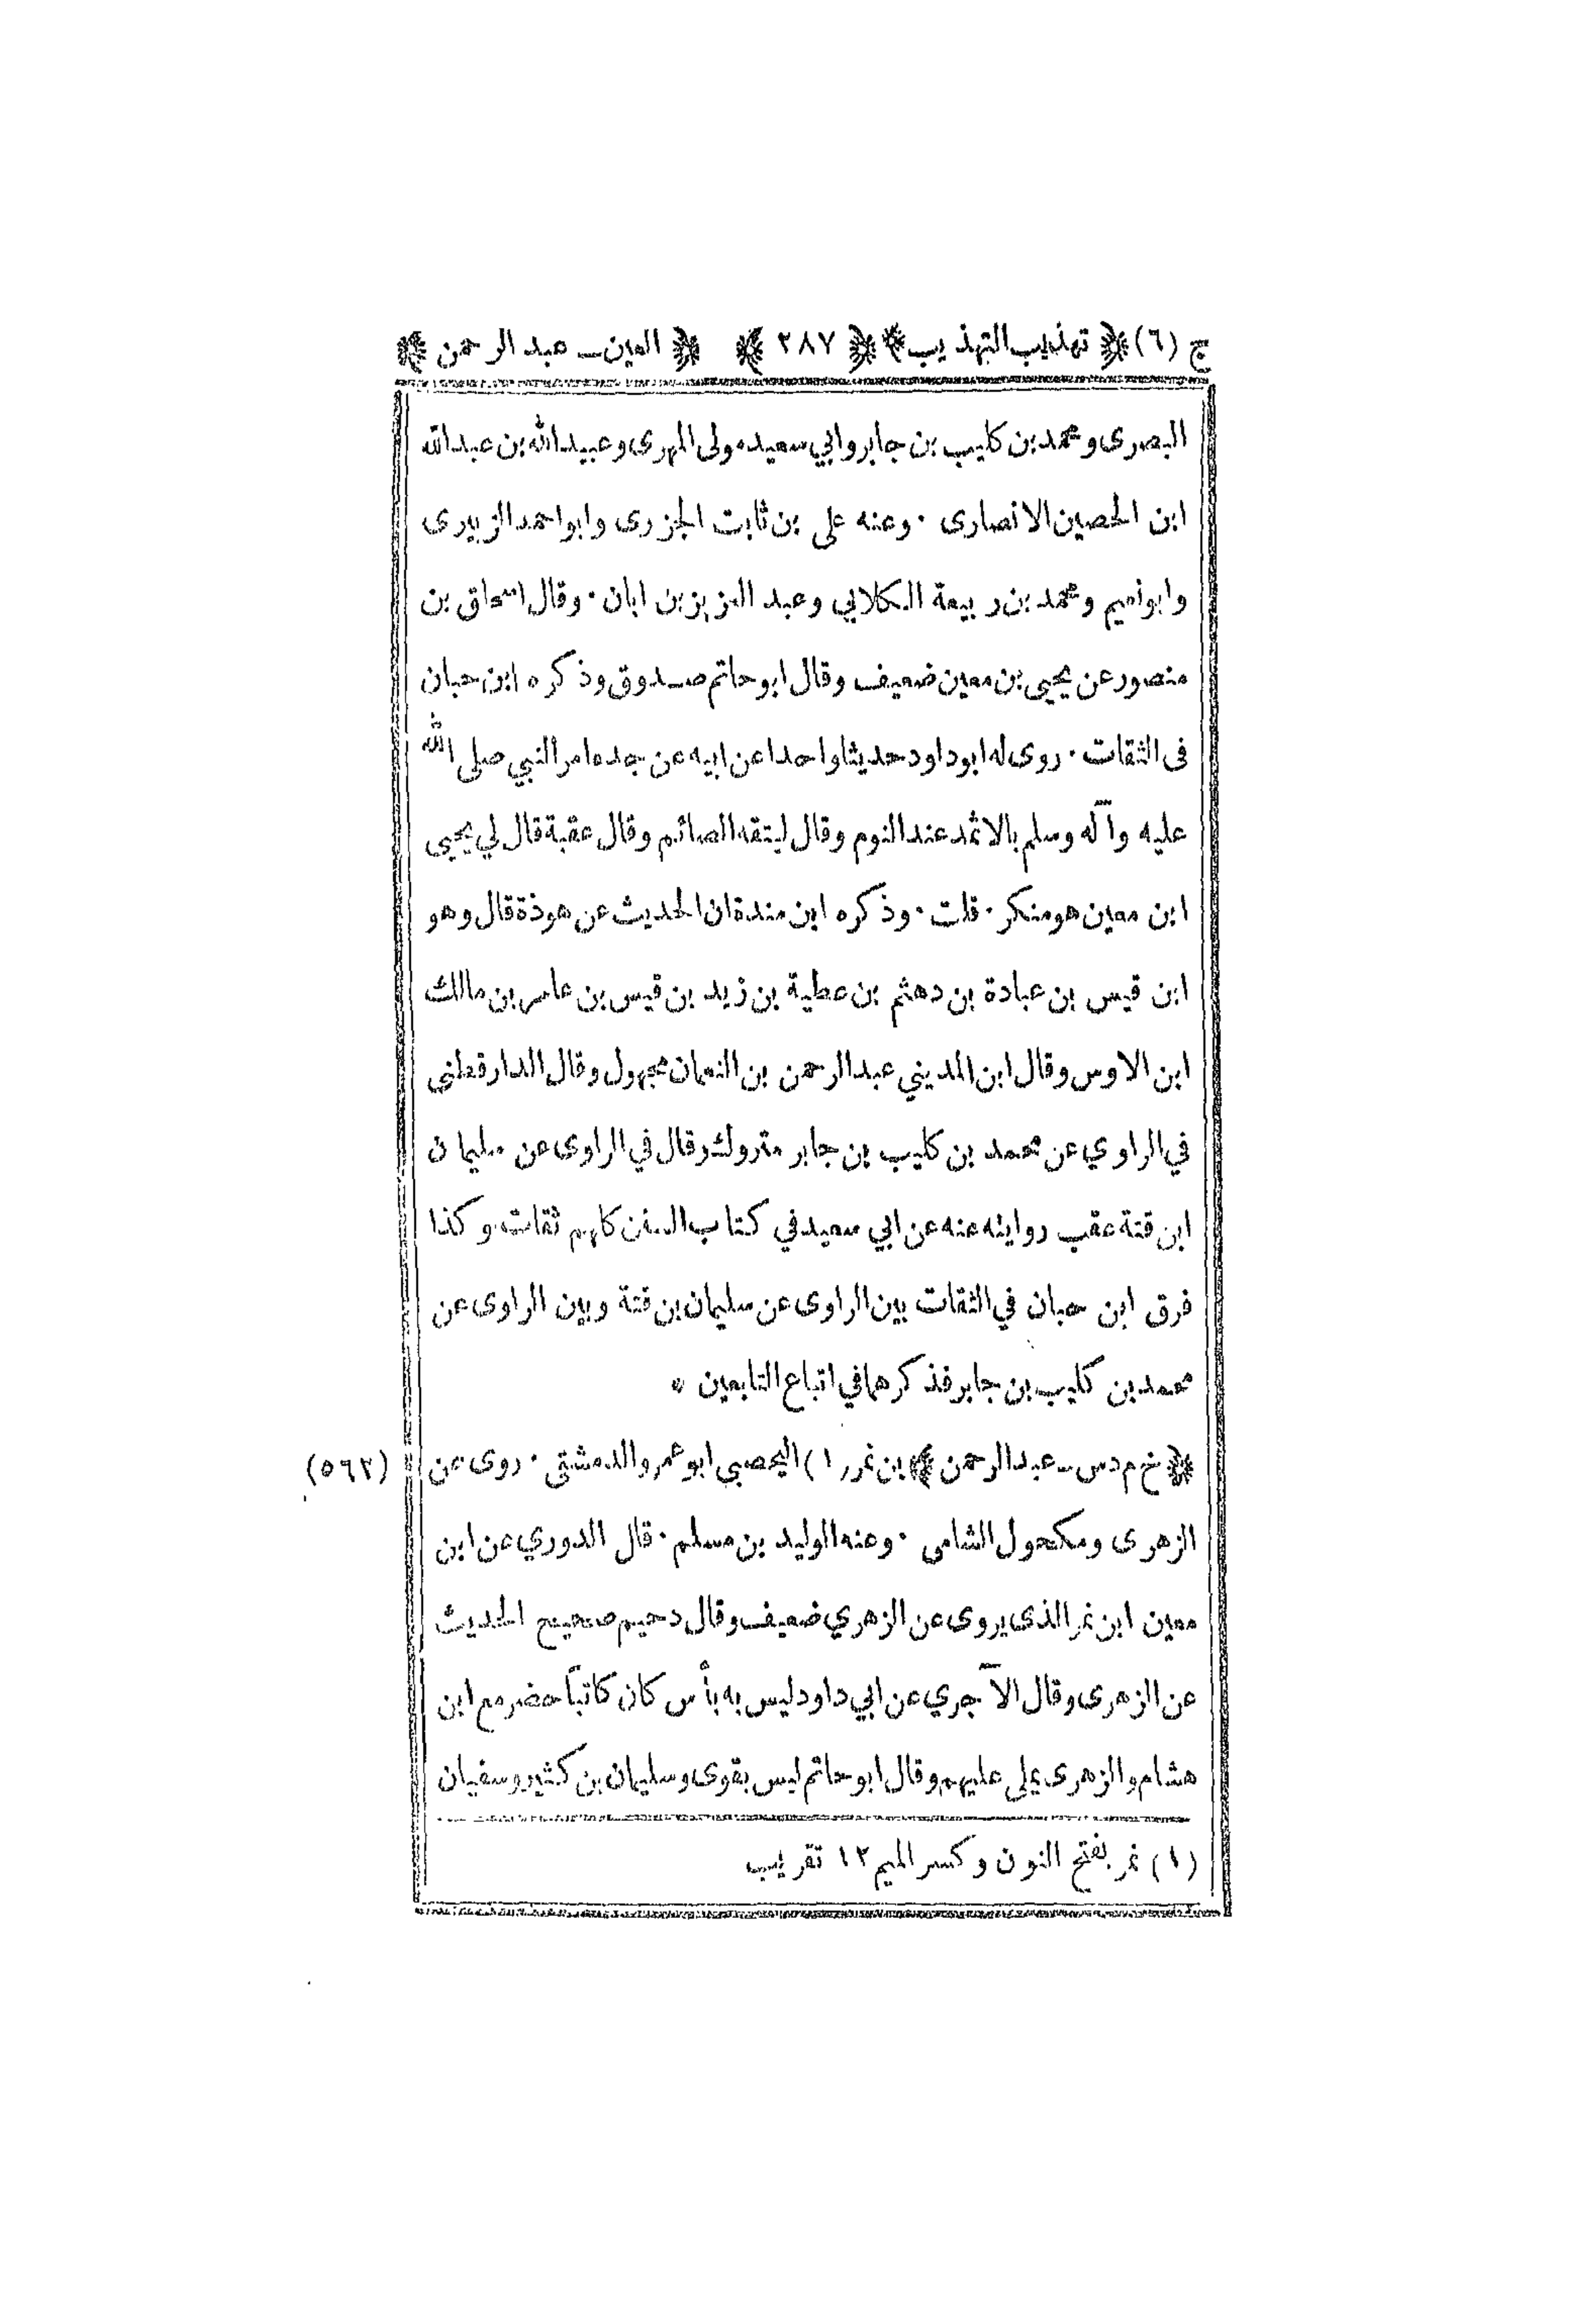 ج (٦) ﴿ تهذيب التهذيب ﴾ ﴿ ٢٨٧ ﴾ ﴿ العين ـ عبد الرحمن ﴾
البصرى ومحمد بن كليب بن جابر وابي سعيد مولى المهرى وعبيد الله بن عبد الله
ابن الحصين الانصارى ٠ وعنه على بن ثابت الجزرى وابو احمد الزبيرى
وابو نعيم ومحمد بن ربيعة الكلابي وعبد العزيز بن ابان ٠ وقال اسحاق بن
منصور عن يحيى بن معين ضعيف وقال ابو حاتم صدوق وذكره ابن حبان
فى الثقات ٠ روى له ابو داود حديثا واحدا عن ابيه عن جده امر النبي صلى الله
عليه وآله وسلم بالاثمد عند النوم وقال ليتقه الصائم وقال عقبة قال لي يحيى
ابن معين هو منكر ٠ قلت ٠ وذكره ابن مندة ان الحديث عن هوذة قال وهو
ابن قيس بن عبادة بن دهثم بن عطية بن زيد بن قيس بن عامر بن مالك
ابن الاوس وقال ابن المديني عبد الرحمن بن النعمان مجهول وقال الدارقطني
في الراوي عن محمد بن كليب بن جابر متروك وقال في الراوى عن سليمان
ابن قتة عقب روايته عنه عن ابي سعيد في كتاب السنن كلهم ثقات وكذا
فرق ابن حبان في الثقات بين الراوى عن سليمان بن قتة وبين الراوى عن
محمد بن كليب بن جابر فذكرهما في اتباع التابعين *
﴿ خ م د س ـ عبد الرحمن ﴾ بن نمر (١) اليحصبي ابو عمرو الدمشقى ٠ روى عن (٥٦٢)
الزهرى ومكحول الشامى ٠ وعنه الوليد بن مسلم ٠ قال الدوري عن ابن
معين ابن نمر الذى يروى عن الزهري ضعيف وقال دحيم صحيح الحديث
عن الزهرى وقال الآجري عن ابي داود ليس به بأس كان كاتباً حضر مع ابن
هشام والزهرى يملى عليهم وقال ابو حاتم ليس بقوى وسليمان بن كثير وسفيان
(١) نمر بفتح النون وكسر الميم ١٢ تقريب